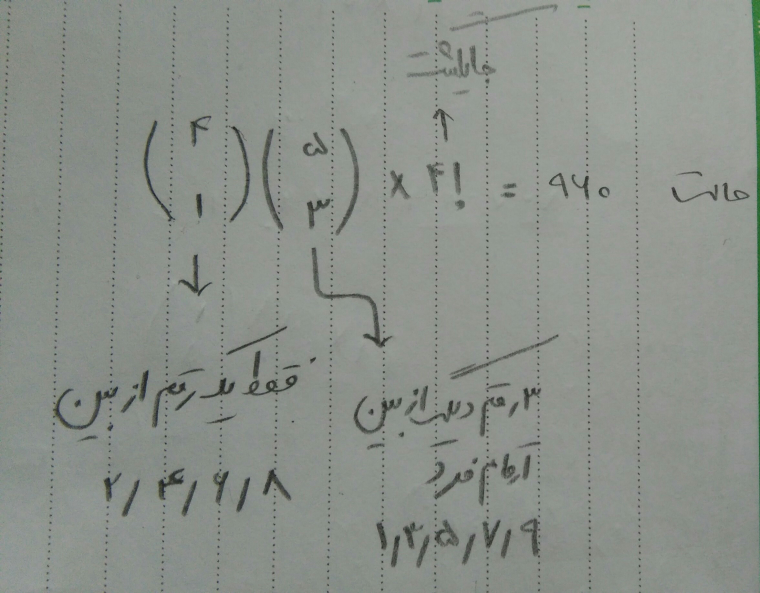 جایگشت
(۴ ۱) (۵ ۳) × ۴! = ۹۶۰ حالت
فقط یک رقم از بین
۲, ۴, ۶, ۸
۳ رقم دیگر از بین
ارقام فرد
۱, ۳, ۵, ۷, ۹